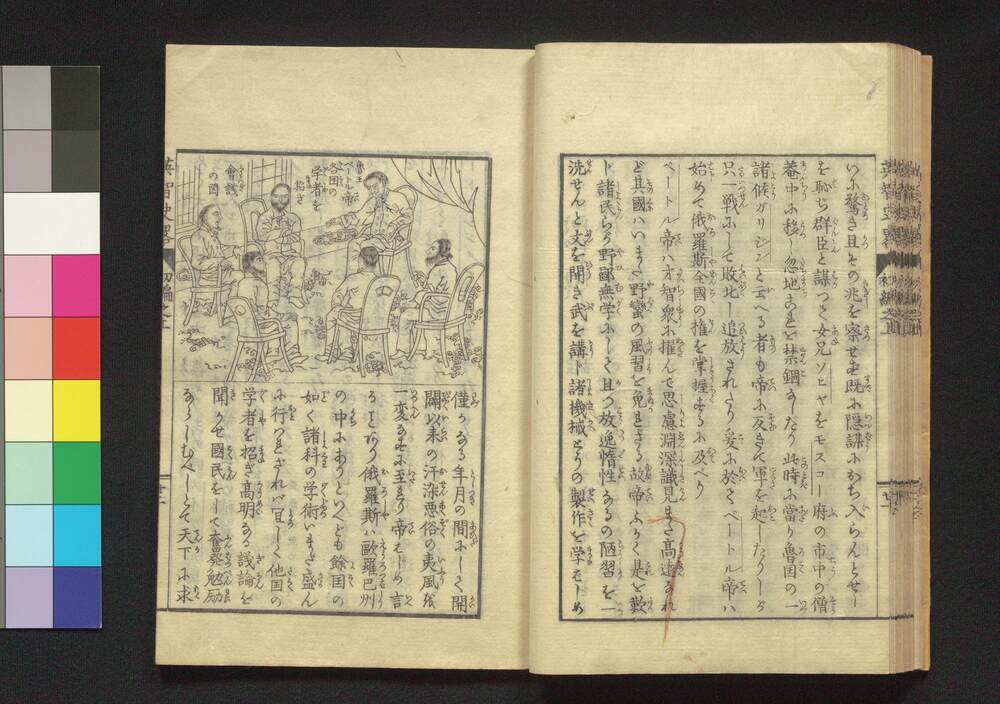 いふ驚き且その兆を察せ
既に隠謀に
を耻ぢ群臣と謀つて女兄ソヒヤをモスコー府の市中の僧
菴中に移し忽地
を禁錮なしたり此時に當り魯国の一
諸候ガリジンと云へる者も帝に反き軍を起したりしが
只一戦にして敗北し追放されたり爰に於てペートル帝ハ
始めて俄羅斯全國の権を掌握するに及べり
ペートル帝ハ才智衆に擢んで思慮淵深識見また高遠なれ
ど其國ハいまだ野蛮の風習を免れざる故帝ふかく是を歎
じ諸民らが野鄙無学にして且つ放逸惰性なるの陋習を一
洗せんと文を開き武を講じ諸機械とうの製作を学むしめ
魯王
ペートル帝
各国の
学者を
招き
會議
の図
僅かなる年月の間にして開
闢以来の汗染悪俗の夷風を
一変するに至れり帝もし
言
ること有り俄羅斯ハ歐羅巴州
の中にありといへども餘国の
如く諸科の学術いまだ盛ん
に行ハれざれバ宜しく他国の
学者を招き高明なる議論を
聞かせ國民をして奮発勉励
なさしむべしとて天下に求
英智史畧
初編之上